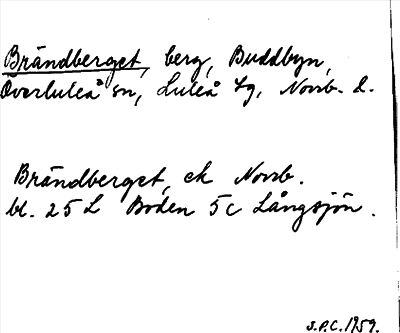 Brändberget, berg, Buddbyn,
Överluleå sn, Luleå tg, Norrb. l.
Brändberget, ek Norrb.
bl. 25 L Boden 5c Långsjön.
S.P.C. 1959.